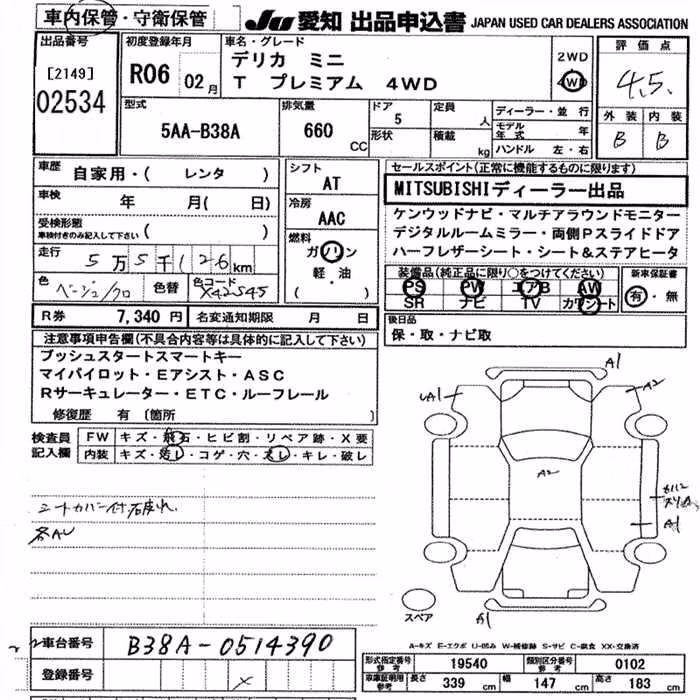 車内保管・守衛保管
JU 愛知 出品申込書 JAPAN USED CAR DEALERS ASSOCIATION
出品番号
[2149]
02534
初度登録年月
R06 02月
車名・グレード
デリカ ミニ
T プレミアム 4WD
2WD
4WD
評価点
4.5.
外装 内装
B B
型式
5AA-B38A
排気量
660 CC
ドア 5
形状
定員 人
積載 kg
ディーラー・並行
モデル年式 年
ハンドル 左・右
車歴
自家用・( レンタ )
車検 年 月( 日)
受検形態
車検付きのみ記入して下さい ( )
走行
5万5千126km
色 ベージュ/クロ 色替 色コード X42545
シフト
AT
冷房
AAC
燃料
ガソリン
軽・油
( )
セールスポイント(正常に機能するものに限ります)
MITSUBISHIディーラー出品
ケンウッドナビ・マルチアラウンドモニター
デジタルルームミラー・両側Pスライドドア
ハーフレザーシート・シート&ステアヒータ
装備品(純正品に限り○をつけてください)
PS PW エアB AW
SR ナビ TV カワシート
新車保証書
有・無
R券 7,340 円 名変通知期限 月 日
後日品
保・取・ナビ取
注意事項申告欄(不具合内容等は具体的に記入して下さい)
プッシュスタートスマートキー
マイパイロット・Eアシスト・ASC
Rサーキュレーター・ETC・ルーフレール
修復歴 有 〔箇所
検査員記入欄
FW キズ・飛石・ヒビ割・リペア跡・X要
内装 キズ・汚レ・コゲ・穴・スレ・キレ・破レ
シートカバー付
各AU
A1
A2
UA1
A2
A1
A1
スペア
A-キズ E-エクボ U-凹み W-補修跡 S-サビ C-腐食 XX-交換済
車台番号 B38A-0514390
登録番号 X
形式指定番号 参考 19540 類別区分番号 参考 0102
車庫証明用 参考 長さ 339 cm 幅 147 cm 高さ 183 cm